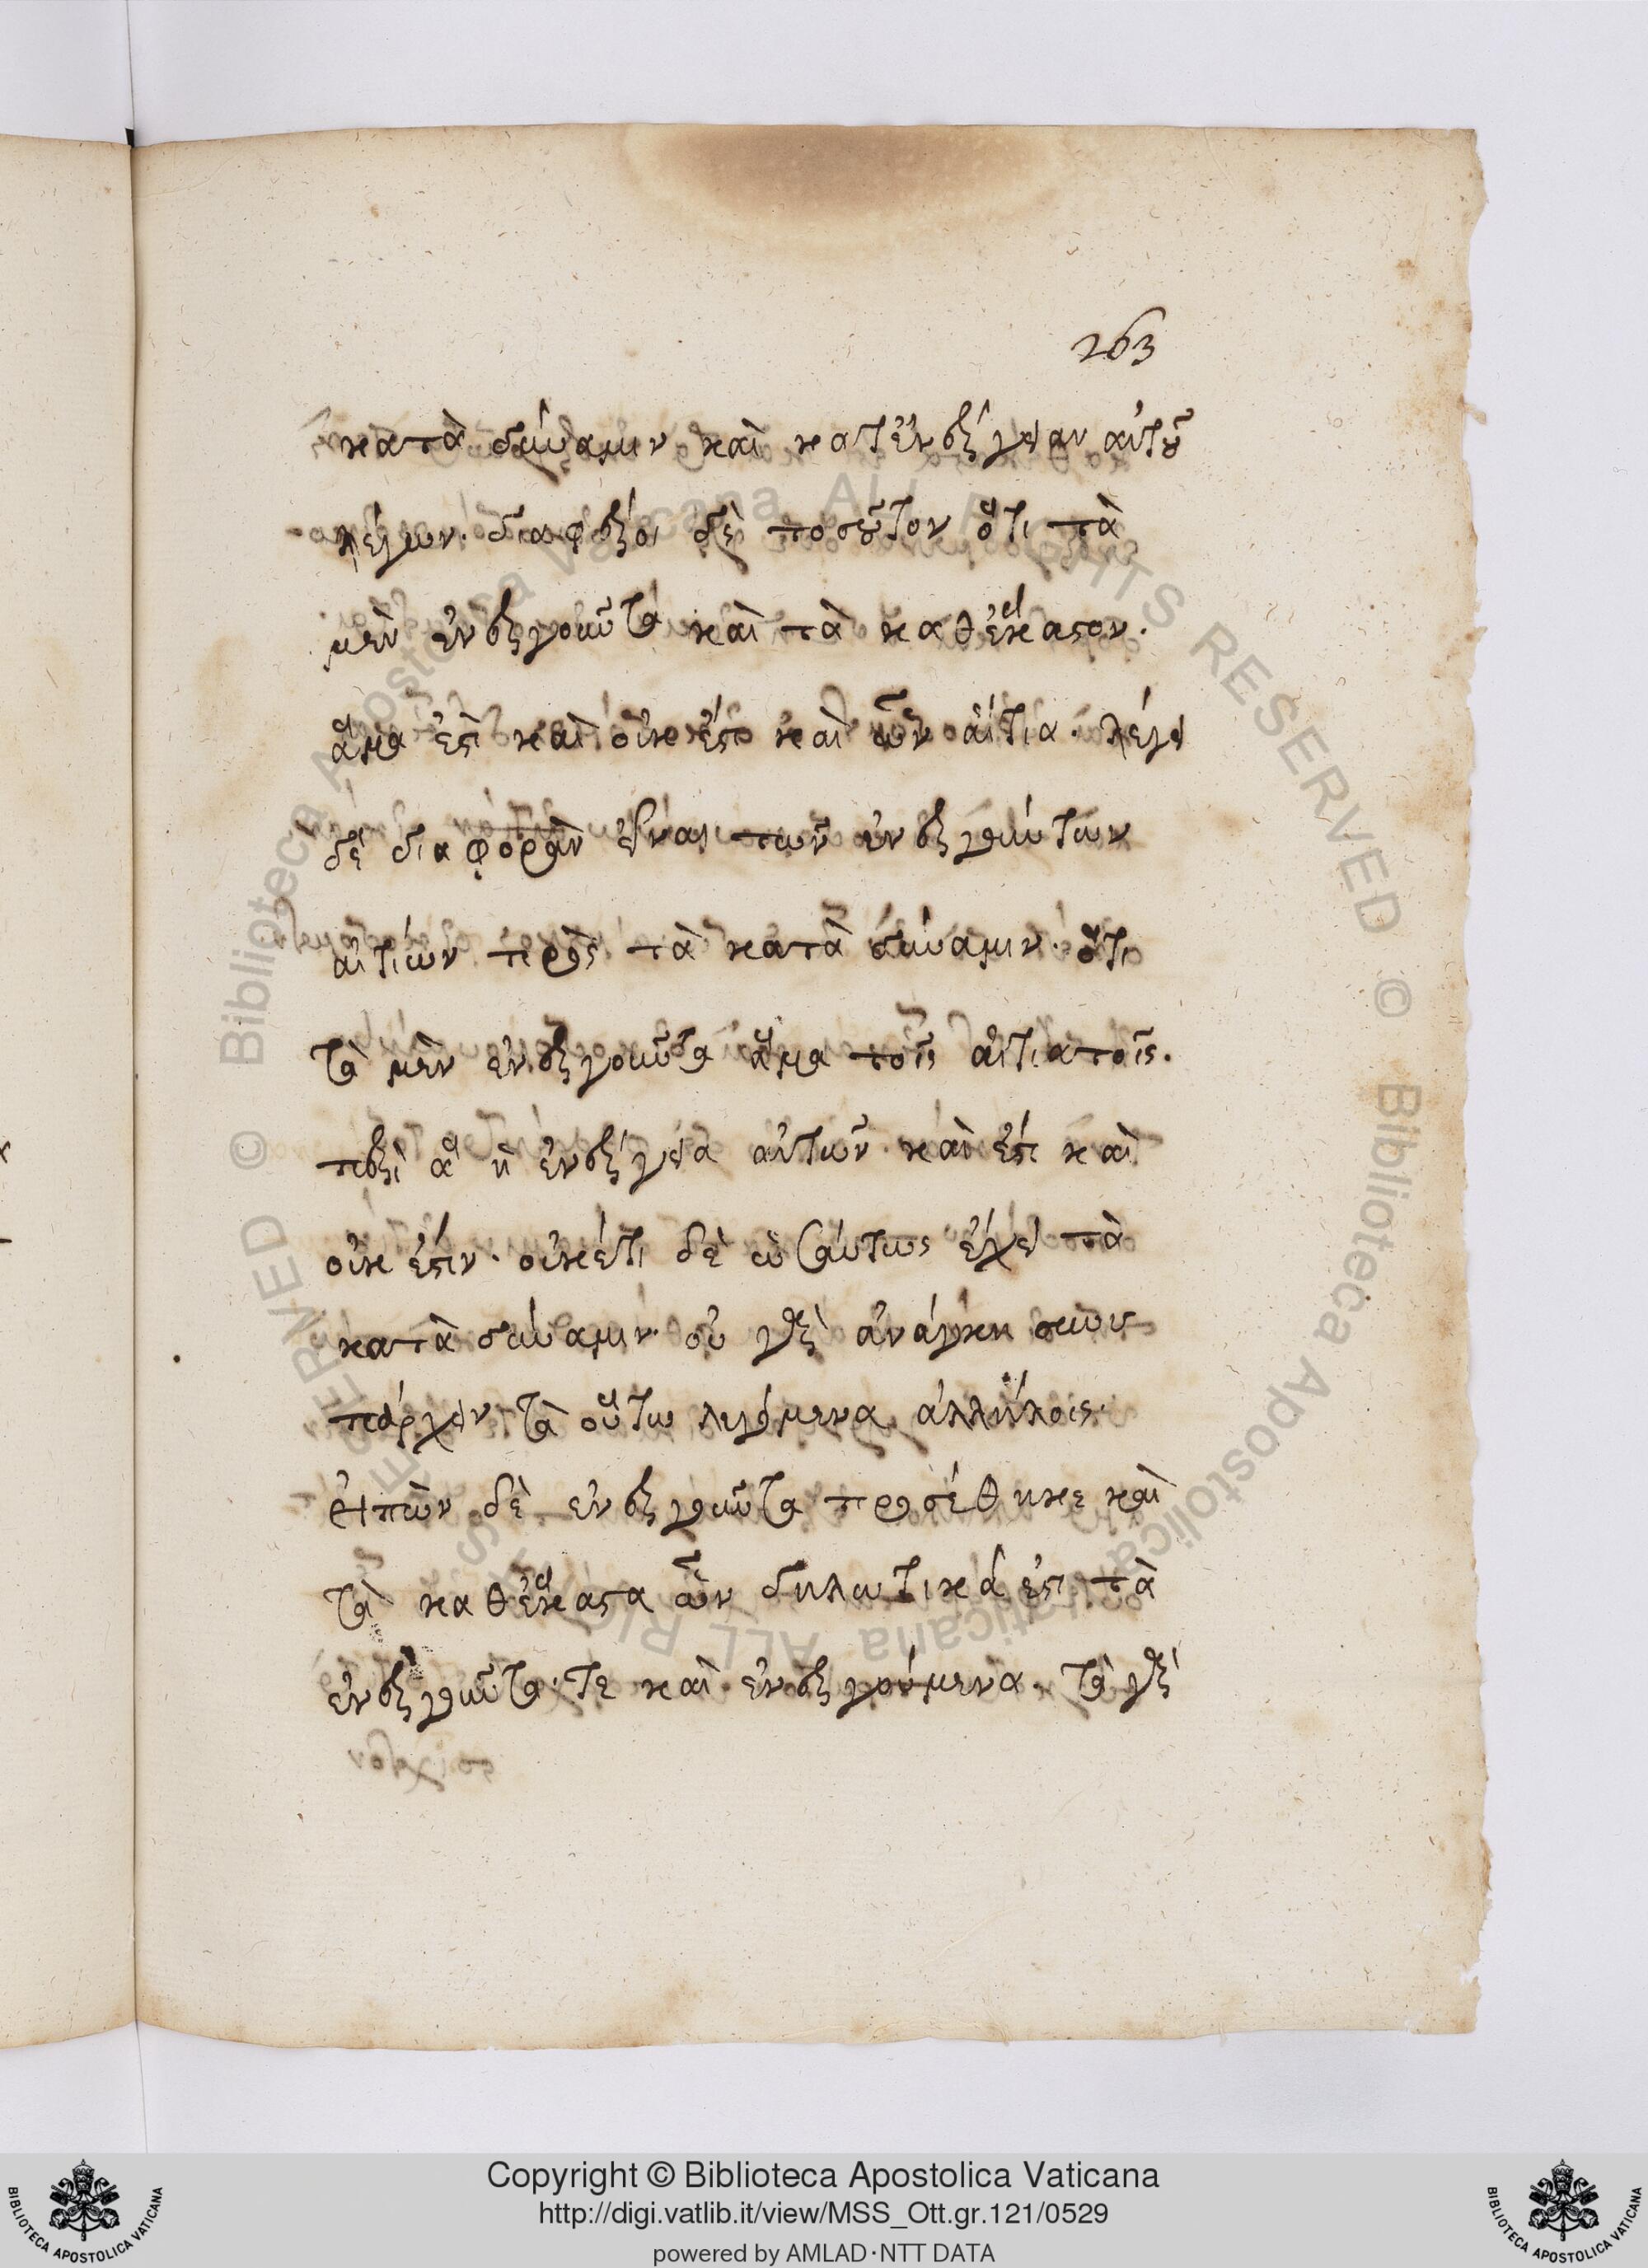 263
κατὰ δύναμιν καὶ κατ' ἐνέργειαν αὐτοῦ
λέγων. διαφέρει δὲ τοσοῦτον ὅτι τὰ
μὲν ἐνεργοῦντα καὶ τὰ καθέκαστον.
ἅμα ἐστὶ καὶ οὐκ ἔστι καὶ ὧν αἴτια. λέγει
δὲ διαφορὰν εἶναι τῶν ἐνεργούντων
αἰτίων πρὸς τὰ κατὰ δύναμιν. ὅτι
τὰ μὲν ἐνεργοῦντα ἅμα τοῖς αἰτιατοῖς.
περὶ ἃ ἡ ἐνέργεια αὐτῶν καὶ ἔστι καὶ
οὐκ ἔστιν. οὐκέτι δὲ ὡσαύτως ἔχει τὰ
κατὰ δύναμιν. οὐ γὰρ ἀνάγκη συνυ
πάρχειν τὰ οὕτω λεγόμενα ἀλλήλοις.
εἰπὼν δὲ ἐνεργοῦντα προσέθηκε καὶ
τὰ καθέκαστα ὧν δηλωτικά ἐστι τὰ
ἐνεργοῦντα τε καὶ ἐνεργούμενα. τὰ γὰρ
Copyright © Biblioteca Apostolica Vaticana
http://digi.vatlib.it/view/MSS_Ott.gr.121/0529
powered by AMLAD·NTT DATA
BIBLIOTECA APOSTOLICA VATICANA
BIBLIOTECA APOSTOLICA VATICANA
© Biblioteca Apostolica Vaticana ALL RIGHTS RESERVED
© Biblioteca Apostolica Vaticana ALL RIGHTS RESERVED